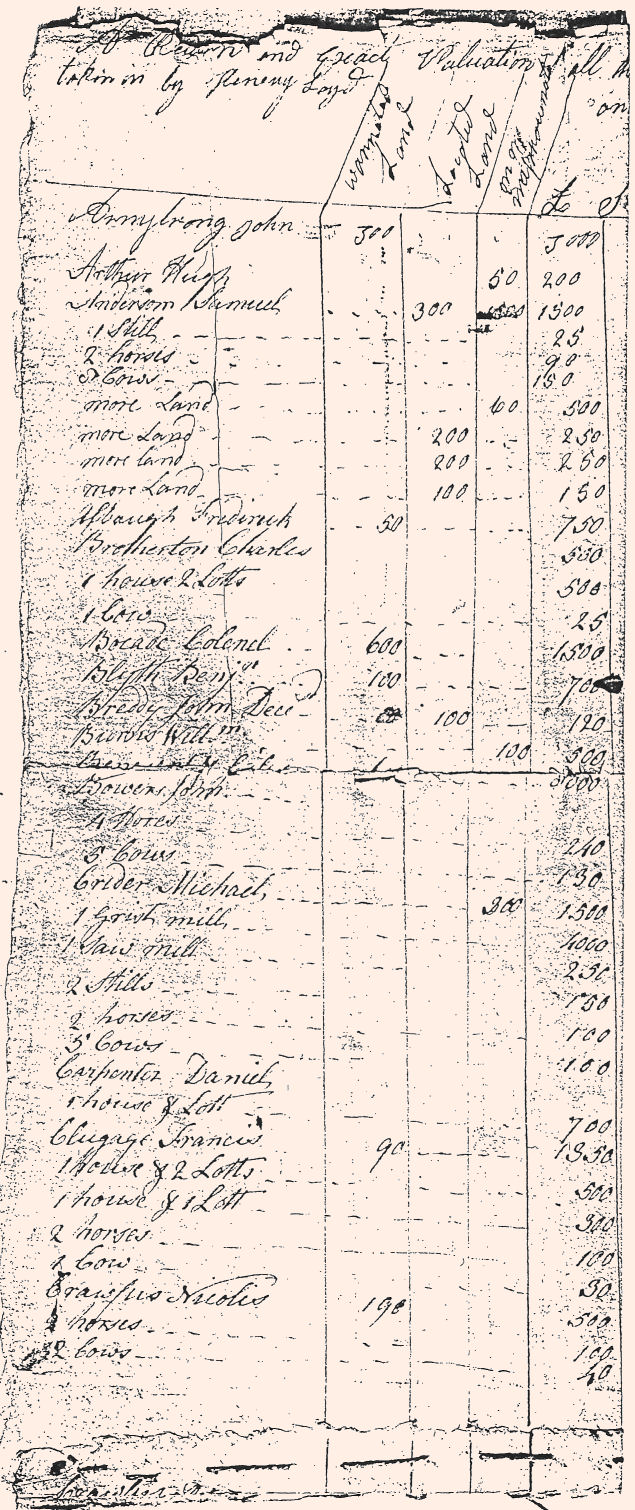 A Return and Exact Valuation all
taken in by Henery Loyd on
warrated Land
Located Land
£
Armstrong John 300 3000
Arthur Hugh 50 200
Anderson Samuel 300 1500
1 Still 25
2 horses 90
5 Cows 150
more Land 60 500
more Land 200 250
more land 200 250
more Land 100 150
Frederick 50 750
Brotherton Charles 500
1 house 2 Lotts 500
1 Cow 25
Bocade Colonel 600 1500
Blyth Benjn 100 700
Bready John Decd 100 120
Burns Willm 100 500
Bowers John
4 Hores 240
5 Cows 130
Crider Michael 300 1500
1 Grist mill 4000
1 Saw mill 250
2 Stills 150
2 horses 100
5 Cows 100
Carpenter Daniel
1 house & Lott 700
Clugage Francis 90 1350
1 house & 2 Lotts 500
1 house & 1 Lott 300
2 horses 100
1 Cow 30
190 500
horses 100
2 Cows 40